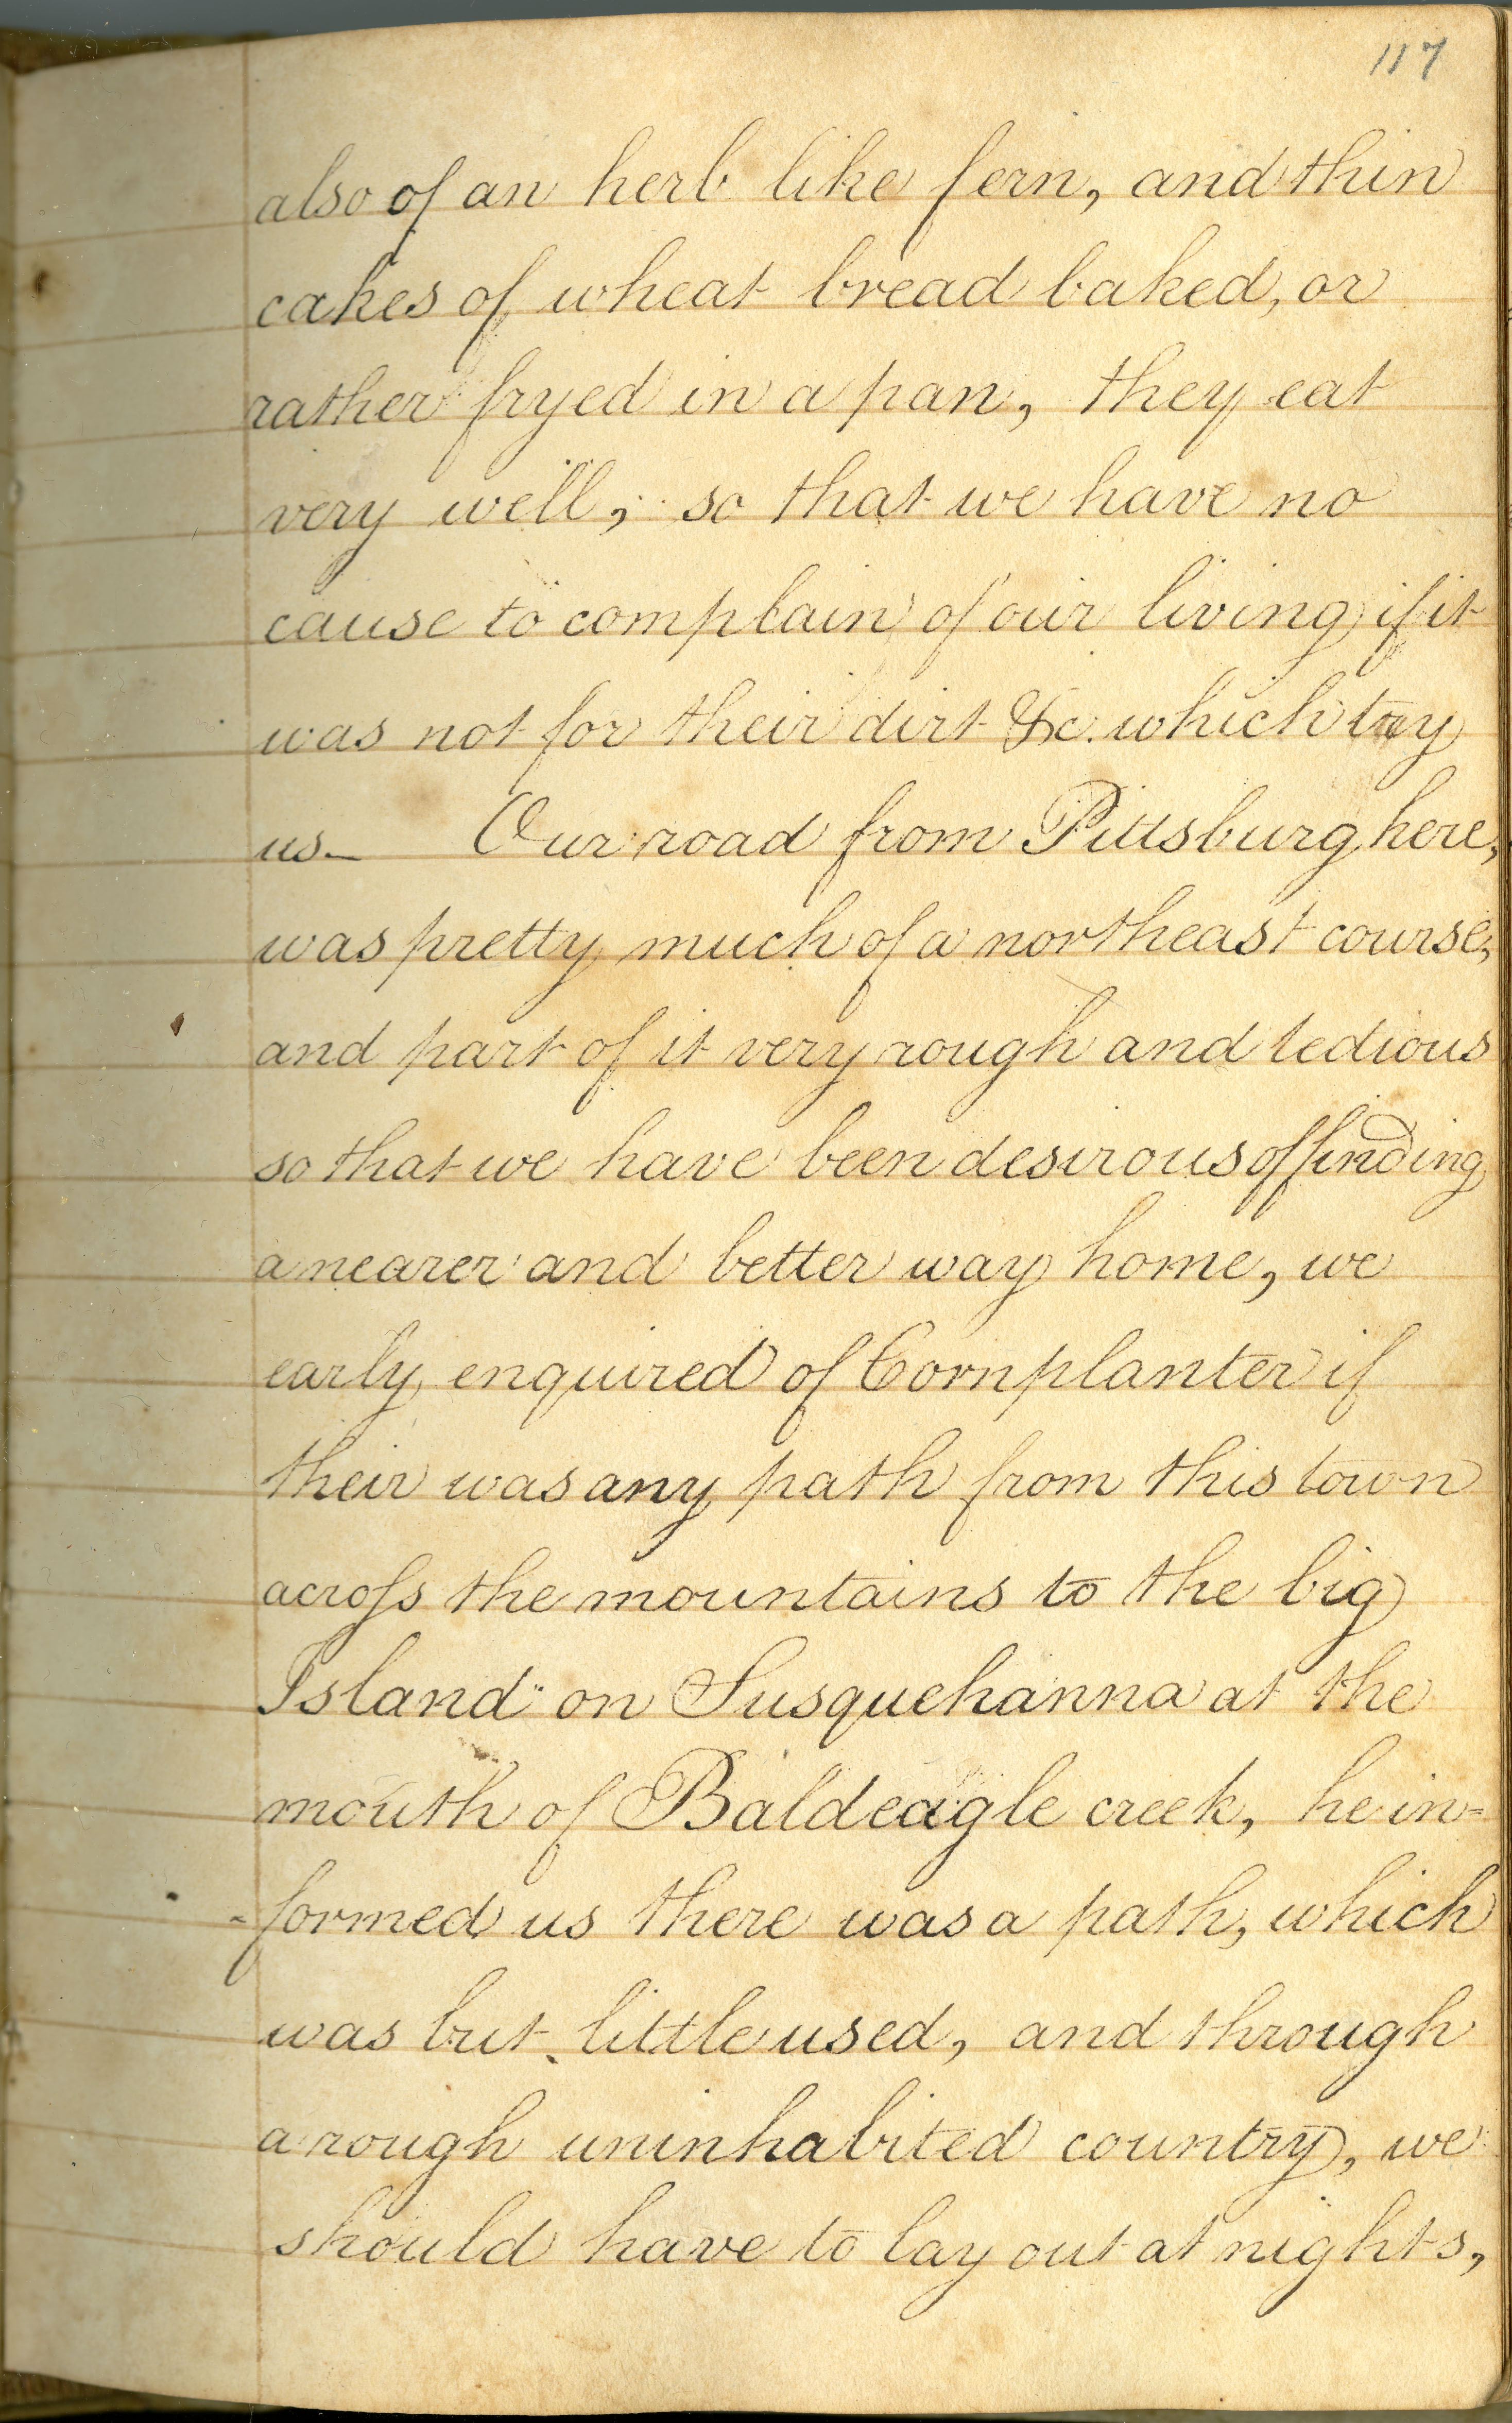 117
also of an herb like fern, and thin
cakes of wheat bread baked, or
rather fryed in a pan, they eat
very well; so that we have no
cause to complain of our living if it
was not for their dirt &c. which try
us— Our road from Pittsburg here,
was pretty much of a northeast course,
and part of it very rough and tedious
so that we have been desirous of finding
a nearer and better way home, we
early enquired of Cornplanter if
their was any path from this town
across the mountains to the big
Island on Susquehanna at the
mouth of Baldeagle creek, he in=
-formed us there was a path, which
was but little used, and through
a rough uninhabited country, we
should have to lay out at nights,